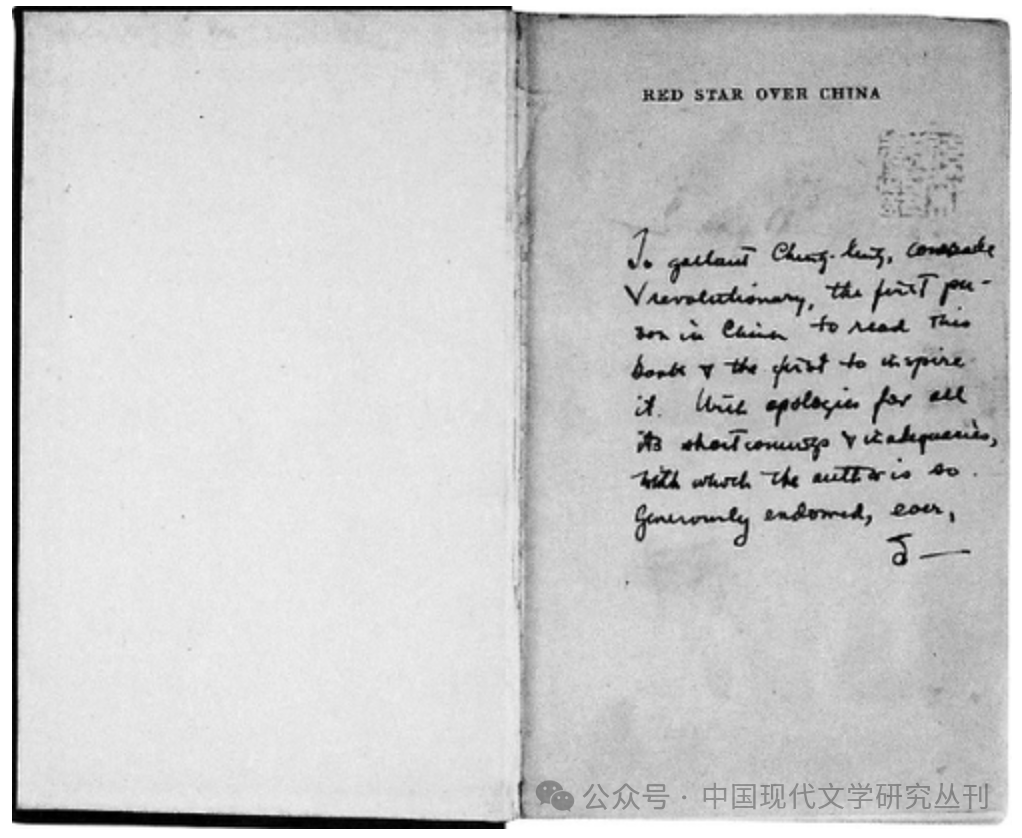 RED STAR OVER CHINA
To gallant Ching-ling, comrade
& revolutionary, the first per-
son in China to read this
book & the first to inspire
it. With apologies for all
its shortcomings & inadequacies,
with which the author is so
generously endowed, ever,
公众号 · 中国现代文学研究丛刊